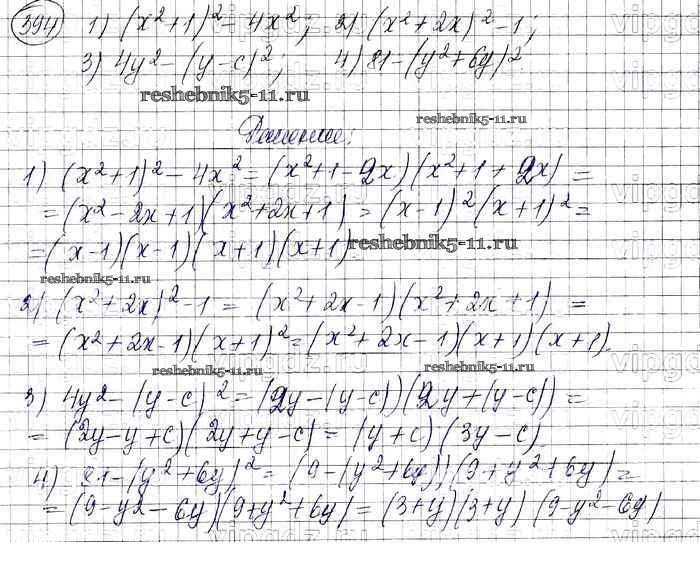 394 1) (x²+1)² - 4x²; 2) (x²+2x)² - 1;
3) 4y² - (y-c)²; 4) 81 - (y²+6y)²
reshebnik5-11.ru
reshebnik5-11.ru
Решение:
1) (x²+1)² - 4x² = (x²+1-2x)(x²+1+2x) =
= (x²-2x+1)(x²+2x+1) = (x-1)²(x+1)² =
= (x-1)(x-1)(x+1)(x+1)
reshebnik5-11.ru
reshebnik5-11.ru
2) (x²+2x)² - 1 = (x²+2x-1)(x²+2x+1) =
= (x²+2x-1)(x+1)² = (x²+2x-1)(x+1)(x+1)
reshebnik5-11.ru
reshebnik5-11.ru
3) 4y² - (y-c)² = (2y-(y-c))(2y+(y-c)) =
= (2y-y+c)(2y+y-c) = (y+c)(3y-c)
4) 81 - (y²+6y)² = (9-(y²+6y))(9+y²+6y) =
= (9-y²-6y)(9+y²+6y) = (3+y)(3+y)(9-y²-6y)